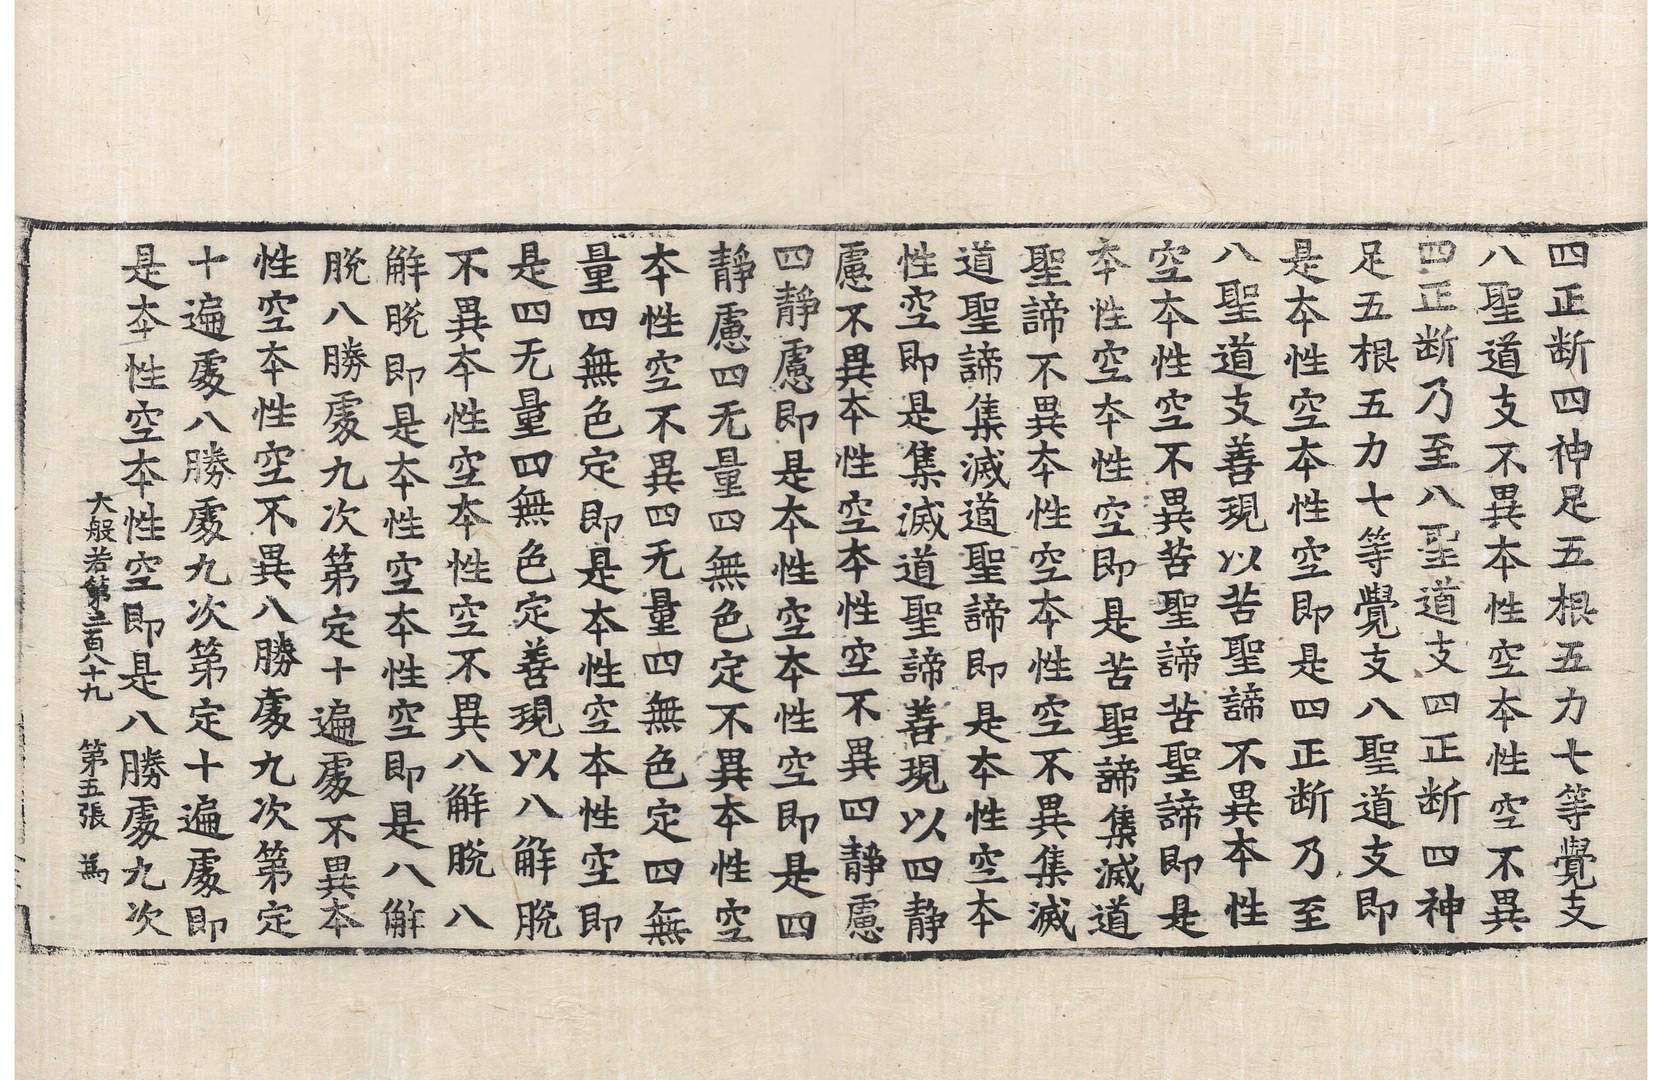 四正断四神足五根五力七等覺支
八聖道支不異本性空本性空不異
四正断乃至八聖道支四正断四神
足五根五力七等覺支八聖道支即
是本性空本性空即是四正断乃至
八聖道支善現以苦聖諦不異本性
空本性空不異苦聖諦苦聖諦即是
本性空本性空即是苦聖諦集滅道
聖諦不異本性空本性空不異集滅
道聖諦集滅道聖諦即是本性空本
性空即是集滅道聖諦善現以四静
慮不異本性空本性空不異四静慮
四静慮即是本性空本性空即是四
静慮四无量四無色定不異本性空
本性空不異四无量四無色定四無
量四無色定即是本性空本性空即
是四无量四無色定善現以八解脱
不異本性空本性空不異八解脱八
解脱即是本性空本性空即是八解
脱八勝處九次第定十遍處不異本
性空本性空不異八勝處九次第定
十遍處八勝處九次第定十遍處即
是本性空本性空即是八勝處九次
大般若第三百八十九 第五張 為